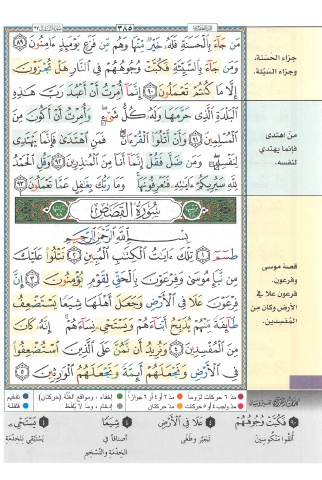 ٣٨٥
مَن جَآءَ بِٱلْحَسَنَةِ فَلَهُۥ خَيْرٌ مِّنْهَا وَهُم مِّن فَزَعٍ يَوْمَئِذٍ ءَامِنُونَ ٨٩
وَمَن جَآءَ بِٱلسَّيِّئَةِ فَكُبَّتْ وُجُوهُهُمْ فِى ٱلنَّارِ هَلْ تُجْزَوْنَ
إِلَّا مَا كُنتُمْ تَعْمَلُونَ ٩٠ إِنَّمَآ أُمِرْتُ أَنْ أَعْبُدَ رَبَّ هَٰذِهِ
ٱلْبَلْدَةِ ٱلَّذِى حَرَّمَهَا وَلَهُۥ كُلُّ شَىْءٍ وَأُمِرْتُ أَنْ أَكُونَ مِنَ
ٱلْمُسْلِمِينَ ٩١ وَأَنْ أَتْلُوَا۟ ٱلْقُرْءَانَ فَمَنِ ٱهْتَدَىٰ فَإِنَّمَا يَهْتَدِى
لِنَفْسِهِۦ وَمَن ضَلَّ فَقُلْ إِنَّمَآ أَنَا۠ مِنَ ٱلْمُنذِرِينَ ٩٢ وَقُلِ ٱلْحَمْدُ
لِلَّهِ سَيُرِيكُمْ ءَايَٰتِهِۦ فَتَعْرِفُونَهَا وَمَا رَبُّكَ بِغَٰفِلٍ عَمَّا تَعْمَلُونَ ٩٣
سُورَةُ القَصَصِ
بِسْمِ ٱللَّهِ ٱلرَّحْمَٰنِ ٱلرَّحِيمِ
طسٓمٓ ١ تِلْكَ ءَايَٰتُ ٱلْكِتَٰبِ ٱلْمُبِينِ ٢ نَتْلُوا۟ عَلَيْكَ
مِن نَّبَإِ مُوسَىٰ وَفِرْعَوْنَ بِٱلْحَقِّ لِقَوْمٍ يُؤْمِنُونَ ٣ إِنَّ
فِرْعَوْنَ عَلَا فِى ٱلْأَرْضِ وَجَعَلَ أَهْلَهَا شِيَعًا يَسْتَضْعِفُ
طَآئِفَةً مِّنْهُمْ يُذَبِّحُ أَبْنَآءَهُمْ وَيَسْتَحْىِۦ نِسَآءَهُمْ إِنَّهُۥ كَانَ
مِنَ ٱلْمُفْسِدِينَ ٤ وَنُرِيدُ أَن نَّمُنَّ عَلَى ٱلَّذِينَ ٱسْتُضْعِفُوا۟
فِى ٱلْأَرْضِ وَنَجْعَلَهُمْ أَئِمَّةً وَنَجْعَلَهُمُ ٱلْوَٰرِثِينَ ٥
جزاء الحَسَنة،
وجزاء السَيّئة.
من اهتدى
فإنما يهتدي
لنفسه.
قصة موسى
وفرعون.
فرعون علا في
الأرض وكان من
المُفسِدين.
مدّ ٦ حركات لزوماً
مدّ ٢ أو ٤ أو ٦ جوازاً
إخفاء، ومواقع الغُنَّة (حركتان)
تفخيم
مدّ واجب ٤ أو ٥ حركات
مدّ حركتان
إدغام، وما لا يُلفَظ
قلقلة
٩٠ فَكُبَّتْ وُجُوهُهُمْ
أُلقوا منكوسين
٤ عَلَا فِى ٱلْأَرْضِ
تجبّر وطغى
٤ شِيَعًا
أصنافًا في
الخدمة والتسخير
٤ يَسْتَحْىِۦ
يستبقي للخدمة